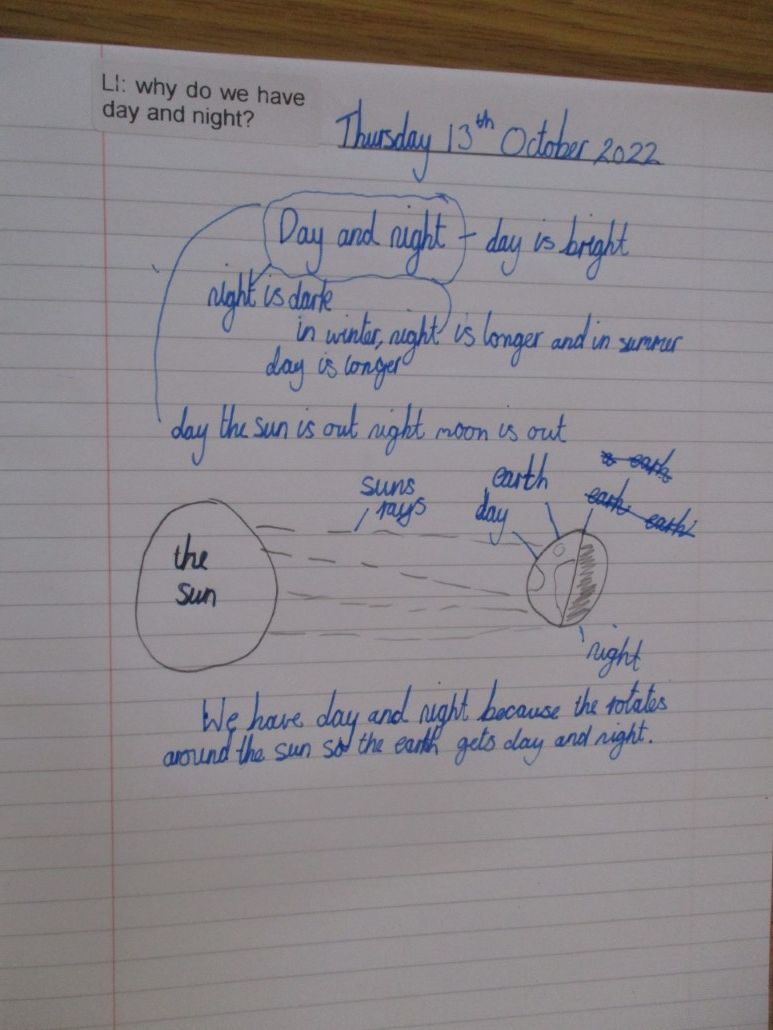 LI: why do we have
day and night?
Thursday 13th October 2022
Day and night - day is bright
night is dark
in winter, night is longer and in summer
day is longer
day the sun is out night moon is out
suns
rays
earth
day
earth
earth earth
the
sun
night
We have day and night because the rotates
around the sun so the earth gets day and night.